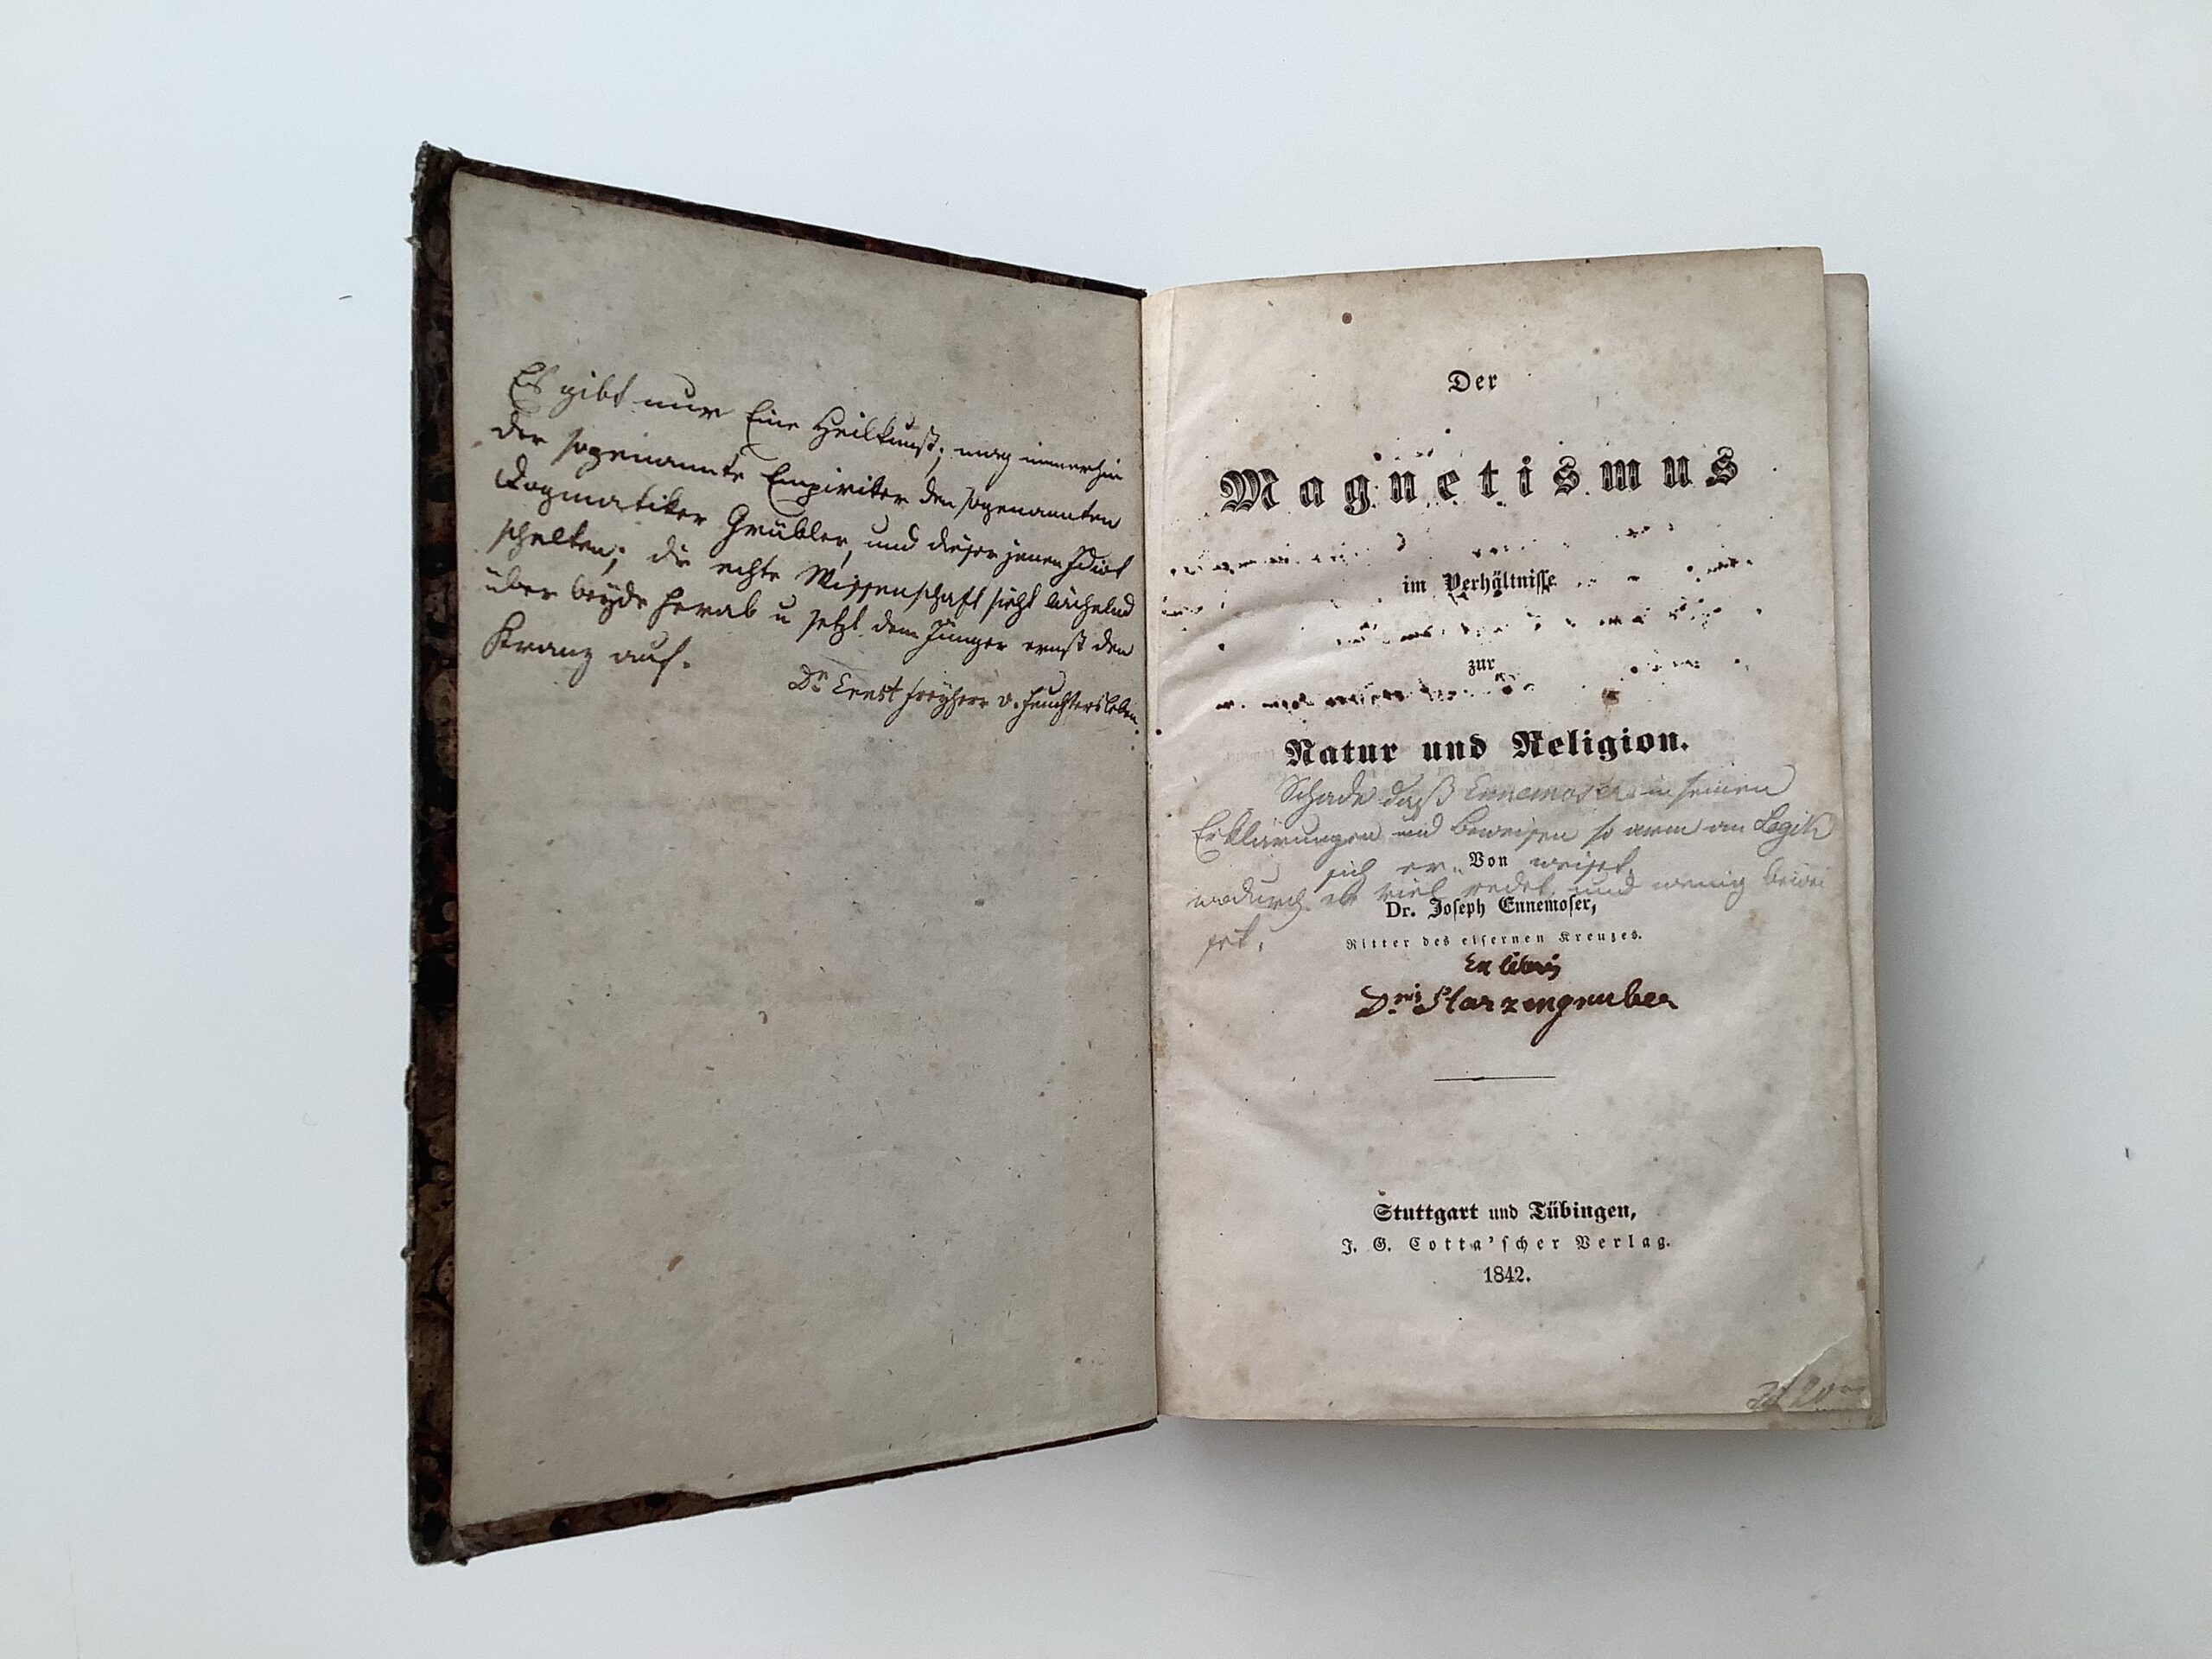 Es gibt nur Eine Heilkunst; mag immerhin
der sogenannte Empiriker den sogenannten
Dogmatiker Grübler, und dieser jenen Idiot
schelten; die echte Wissenschaft sieht lächelnd
über beyde herab u setzt dem Jünger ernst den
Kranz auf.
Dr. Ernst Freyherr v. Feuchtersleben.
Der
Magnetismus
im Verhältnisse
zur
Natur und Religion.
Schade daß Ennemoser in seinen
Erklärungen und Beweisen so arm an Logik
sich er weist,
Von
wodurch er viel redet und wenig bewei
set.
Dr. Joseph Ennemoser,
Ritter des eisernen Kreuzes.
Ex libris
Dris Harzengruber
Stuttgart und Tübingen,
J. G. Cotta'scher Verlag.
1842.